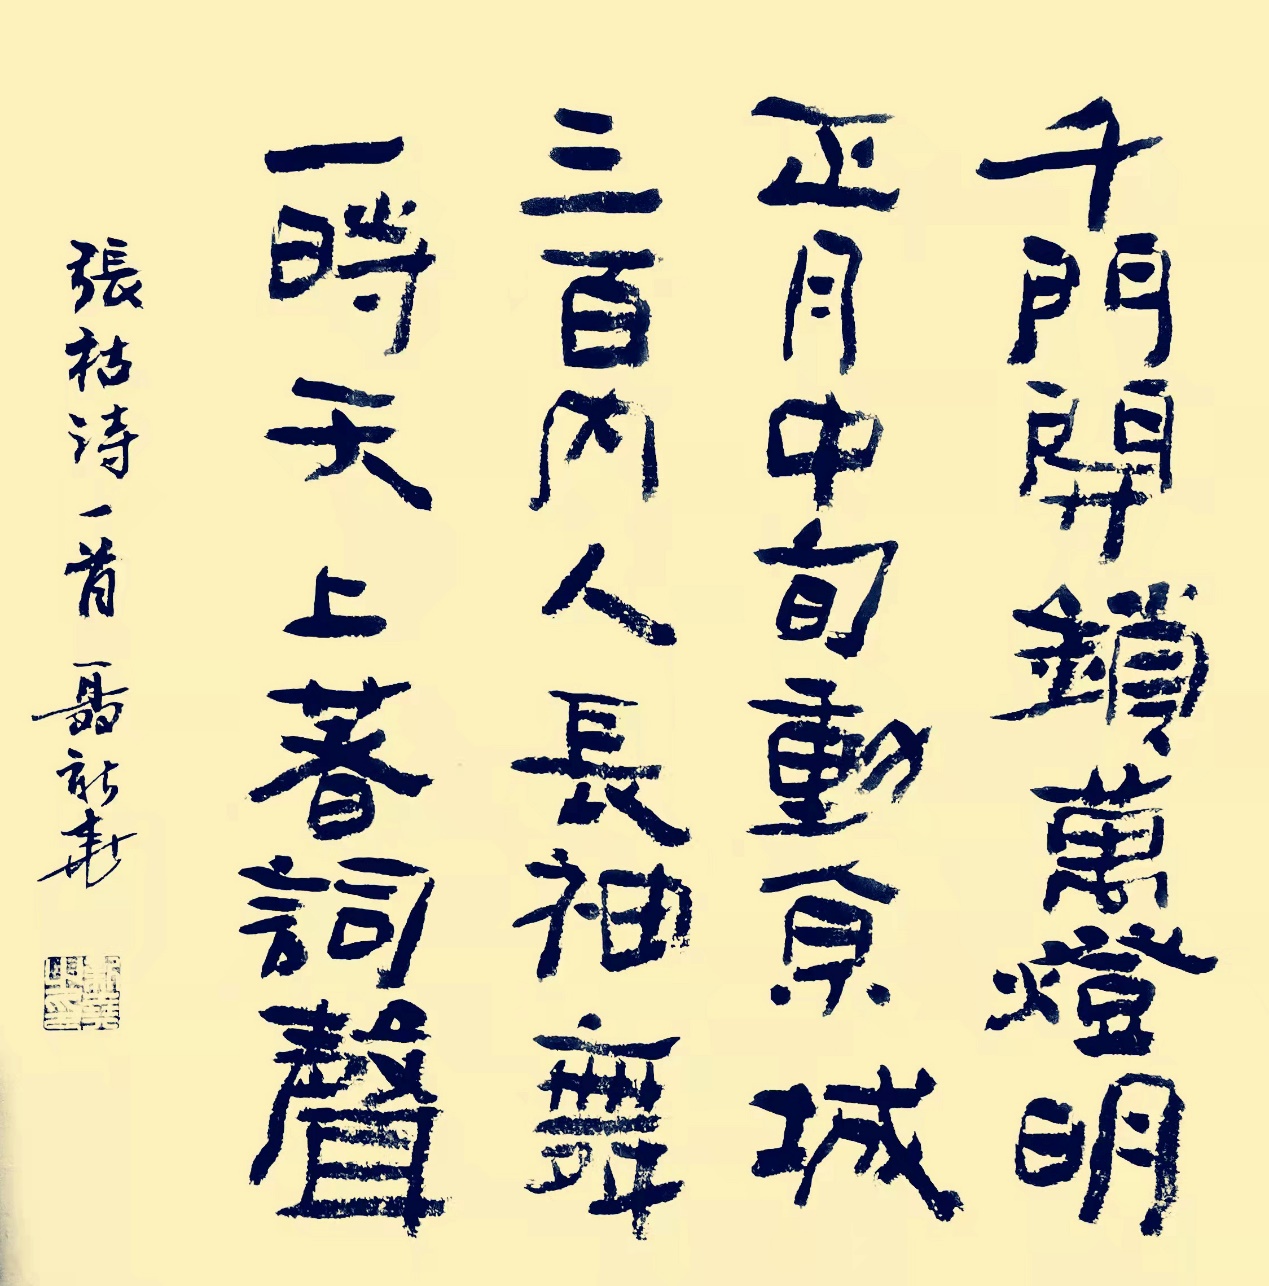 千門開鎖萬燈明
正月中旬動京城
三百內人長袖舞
一時天上著詞聲
張祜詩一首